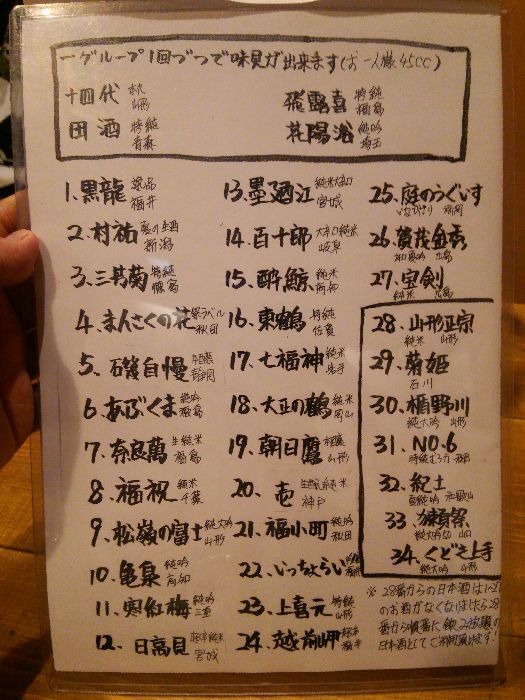 一グループ1回づつで味見が出来ます(お一人様45cc)
十四代 本丸 山形
飛露喜 特純 福島
田酒 特純 青森
花陽浴 純吟 埼玉
1.黒龍 逸品 福井
2.村祐 夏の生酒 新潟
3.三芳菊 特純 徳島
4.まんさくの花 銀ラベル 秋田
5.磯自慢 静岡
6.あぶくま 純吟 福島
7.奈良萬 生純米 福島
8.福祝 純米 千葉
9.松嶺の富士 純大吟 山形
10.亀泉 純吟 高知
11.寒紅梅 純吟 三重
12.日高見 超辛純米 宮城
13.墨廼江 純米大辛口 宮城
14.百十郎 大辛口純米 岐阜
15.酔鯨 純米 高知
16.東鶴 特純 佐賀
17.七福神 純米 岩手
18.大正の鶴 純米 岡山
19.朝日鷹 山形
20.壱 生酛純米 神戸
21.福小町 純吟 秋田
22.いっちょらい 吟醸 福井
23.上喜元 特純 山形
24.越前岬 福井
25.庭のうぐいす いなびかり 福岡
26.賀茂金秀 純吟 広島
27.宝剣 純米 広島
28.山形正宗 純米 山形
29.菊姫 石川
30.楯野川 純大吟 山形
31.NO.6 秋田
32.紀土 純吟 和歌山
33.獺祭 純大吟50 山口
34.くどき上手 純大吟 山形
※28番からの日本酒は
のお酒がなくなりましたら28
番から順番に飲み放題の
日本酒としてご利用頂けます!